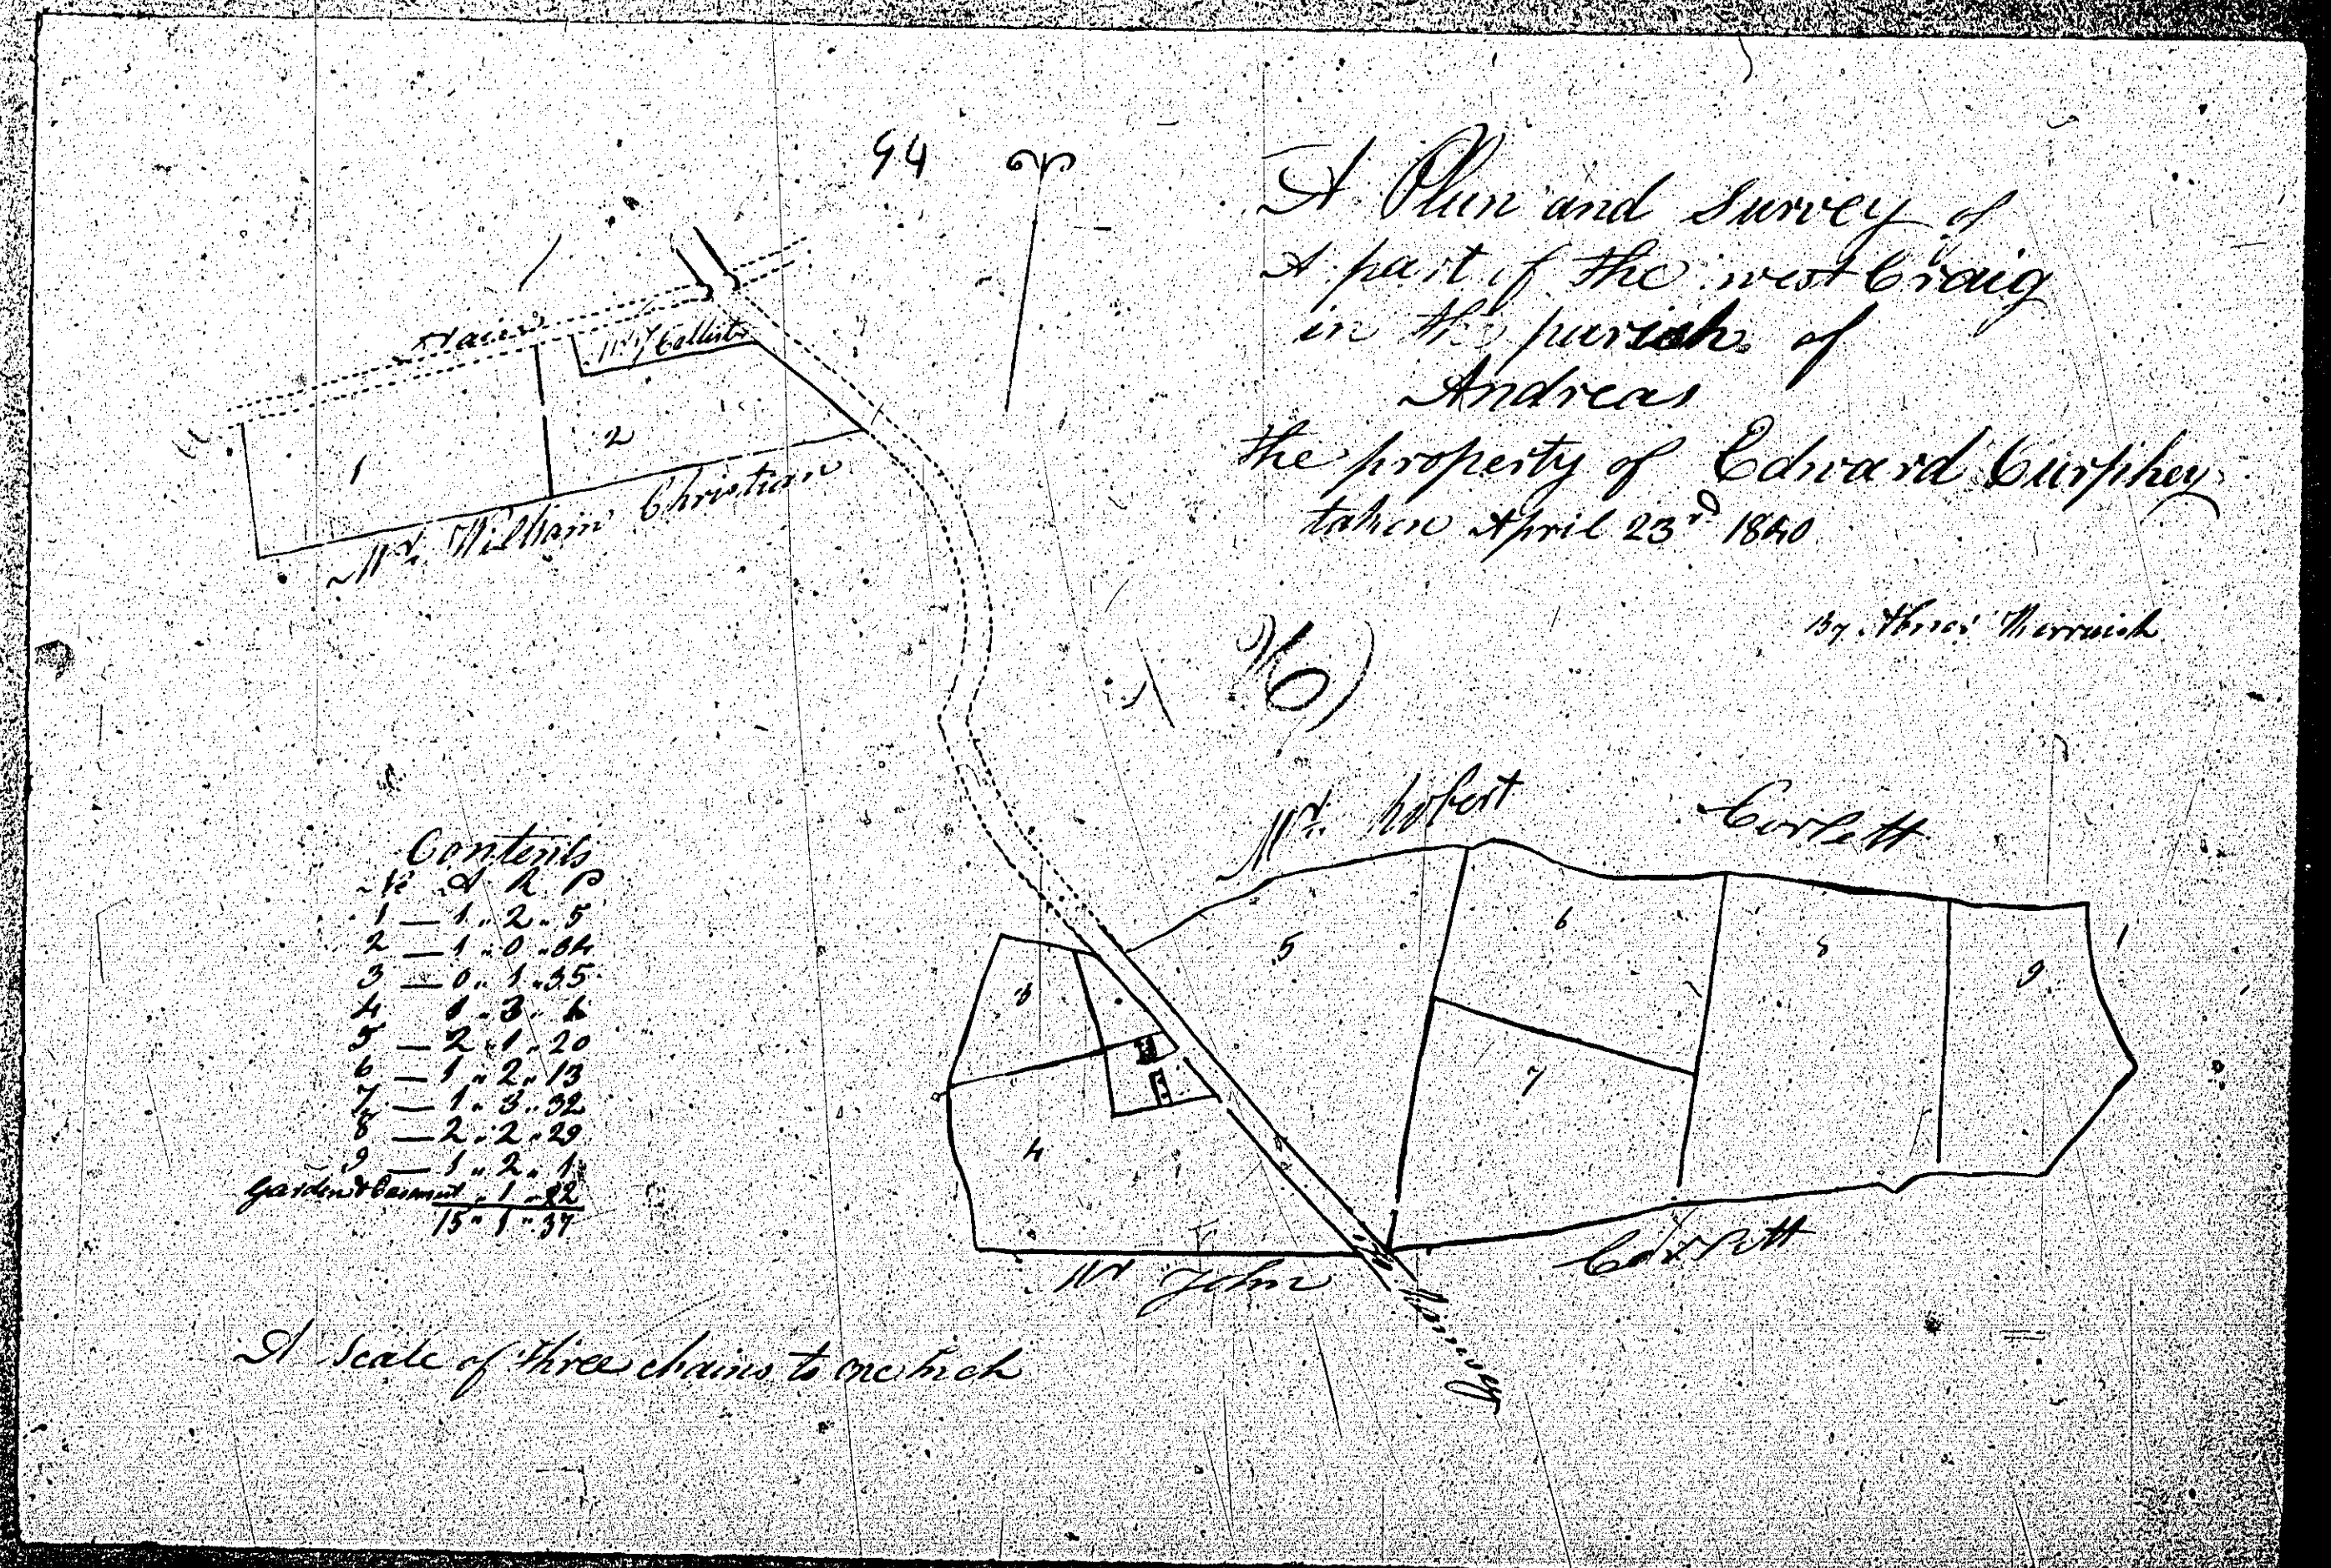 94
A Plan and Survey of
A part of the west Craig
in the parish of
Andreas
the property of Edward Curphey
taken April 23rd 1840
By
Mr William Christian
1
2
Mr Robert Corlett
3
4
5
6
7
8
9
Mr John Corlett
Contents
No A R P
1 — 1 " 2 " 5
2 — 1 " 0 " 34
3 — 0 " 1 " 35
4 1 " 3 " 4
5 — 2 " 1 " 20
6 — 1 " 2 " 13
7 — 1 " 3 " 32
8 — 2 " 2 " 29
9 — 1 " 2 " 1
Garden & Casment " 1 " 22
15 " 1 " 37
A Scale of three chains to one Inch